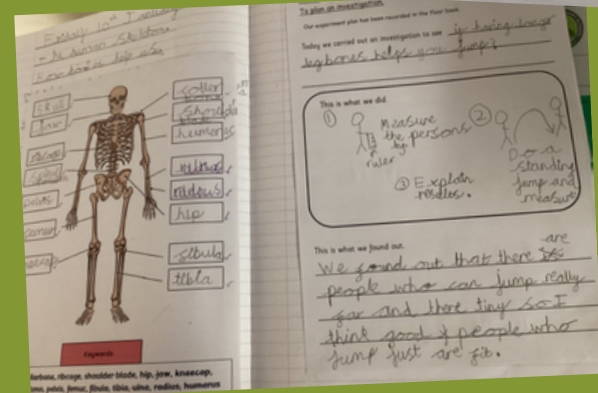 Friday 10th January
The human skeleton
How bones help us
skull
jaw
ribcage
spine
pelvis
femur
kneecap
collar
bone
shoulder
blade
humerus
radious
hip
fibula
tibia
Keywords
ribcage, shoulder-blade, hip, jaw, kneecap,
pelvis, femur, fibula, tibia, ulna, radius, humerus
To plan an investigation.
Our experiment plan has been recorded in the floor book.
Today we carried out an investigation to see if having longer
leg bones helps you jump?
This is what we did.
① Measure
the persons
leg
ruler
② Do a
standing
jump and
measure
③ Explain
results.
This is what we found out.
are
We found out that there is
people who can jump really
far and there tiny so I
think good if people who
jump just are fit.